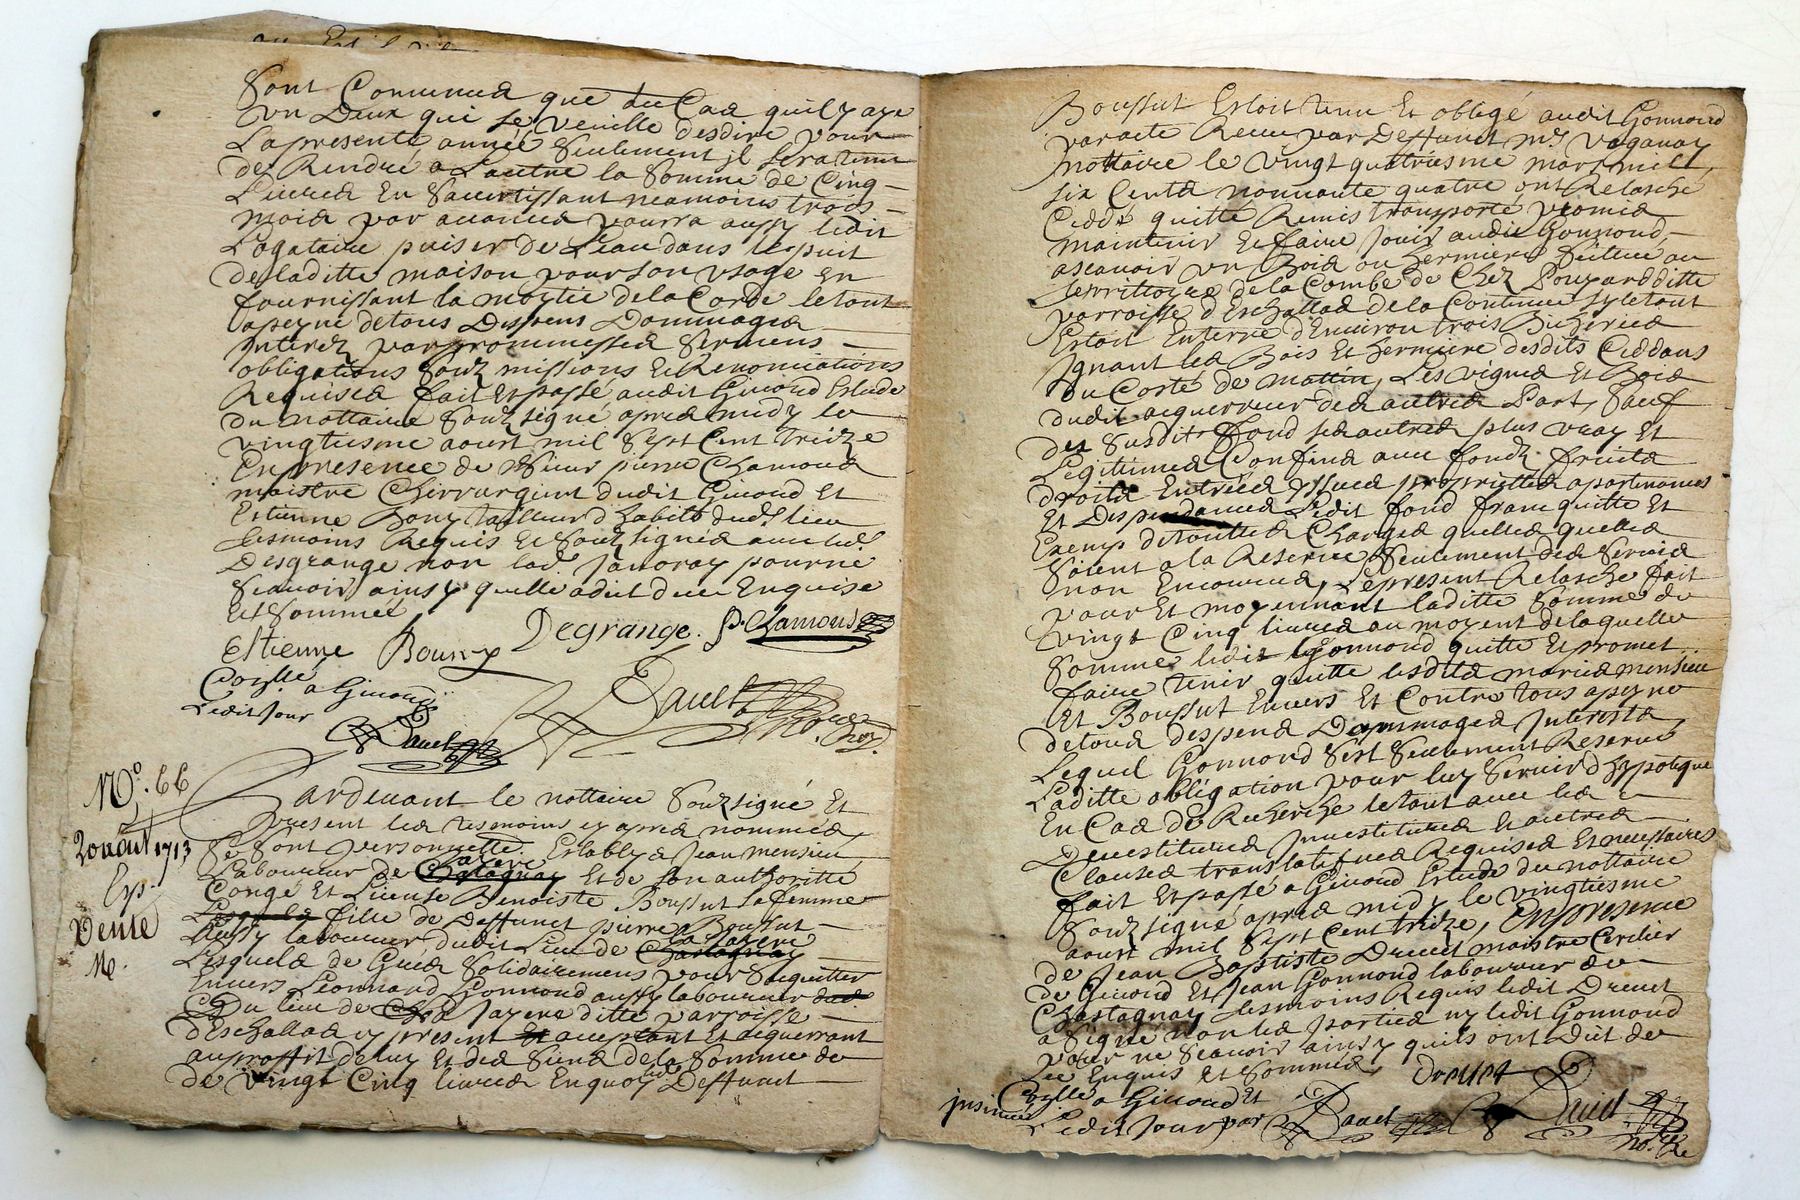 Sont Convenus que au Cas quil y aye
un Deux qui se veuille desdire pour
La presente année seulement jl sera tenu
de Rendre a Lautre la somme de Cinq
Livres En sauertissant neamoins trois
mois par auance pourra aussy ledit
Logataire puiser de Leau dans le puit
de laditte maison pour son vsage en
fournissant la moytié de la Corde le tout
a peyne de tous Despens Dommages
Interez par prommesses sermens
obligations souz missions Et Renonciations
Requises fait Et passé audit Giuord Estude
du nottaire souz signé apres midy le
vingtiesme aoust mil sept Cent treize
En presence de sieur pierre Chamoud
maistre Chirrurgient dudit Giuord Et
Estienne Bony tailleur d'habits dud. lieu
tesmoins Requis Et souz signés auec led.
Desgrange non lad. pour ne
scauoir ainsy quelle a dit de ce Enquise
Et sommée
Estienne Degrange. P. Chamoud
a Giuord
Ledit Jour
No. 66
Pardeuant le nottaire souz signé Et
present les tesmoins cy apres nommés
20 aout 1713
se sont personnelle. Establys Jean mensieu
Laboureur de Et de son authoritté
Congé Et License Benoiste Boussut sa femme
Exp.
Vente
fille de Deffunct pierre Boussut
aussy laboureur dudit Lieu de
Lesquels de Gueq solidairemens pour saquitter
Enuers Leonnard Gonnond aussy laboureur
du lieu de ditte parroisse
d'Eschallas cy present acceptant Et aquerrant
au proffit de luy Et des siens de la somme de
de vingt Cinq liures En quoy Deffunct
Boussut Estoit tenu Et obligé audit Gonnond
par acte Receu par Deffunct Mr. Vaganay
Nottaire le vingt quatriesme mars mil
six Cents nonnante quatre ont Relasché
Ceddé quitté Remis transporté promis
maintenir Et faire Jouir audit Gonnond
ascauoir vn Bois ou hermiere situee au
territoyre de la Combe de Chez Pouzard ditte
parroisse d'Eschallas de la Contenue sy le tout
Estoit En terre d'Enuiron trois Bicherées
Jgnant les Bois Et hermiere desdits Ceddans
du Costé de mattin, Les vignes Et Bois
dudit acquerreur des autres Part, Sauf
des susdits fond ses autres plus vray Et
Legitimes Confins auec fondz fruits
droits Entrées yssues proprietés apartenances
Et Despendances Ledit fond franc quitte Et
Exemp de touttes Charges quelles quelles
soient a la Reserue seulement des seruis
non Encourus, Le present Relasche fait
pour Et moyennant laditte somme de
vingt Cinq liures au moyent de laquelle
somme ledit Gonnond quitte Et promet
faire tenir quitte lesdits mariés mensieu
Et Boussut Enuers Et Contre tous a peyne
de tous despens Dommages Interests
Lequel Gonnond sest seulement Reserué
Laditte obligation pour luy seruir d'hypoteque
En Cas de Recherche le tout auec les
Deuestitures Jnuestitures Et autres
Clauses translatifues Requises Et necessaires
fait Et passé a Giuord Estude du nottaire
souz signé apres midy le vingtiesme
aoust mil sept Cent treize, En presence
de Jean Baptiste Dreuet maistre Cerclier
de Giuord Et Jean Gonnond laboureur de
Chastagnay tesmoins Requis ledit Dreuet
a signé non les parties ny ledit Gonnond
pour ne scauoir ainsy quils ont Dit de
ce Enquis Et sommés
Dreuet
a Giuord Et
Ledit Jour par